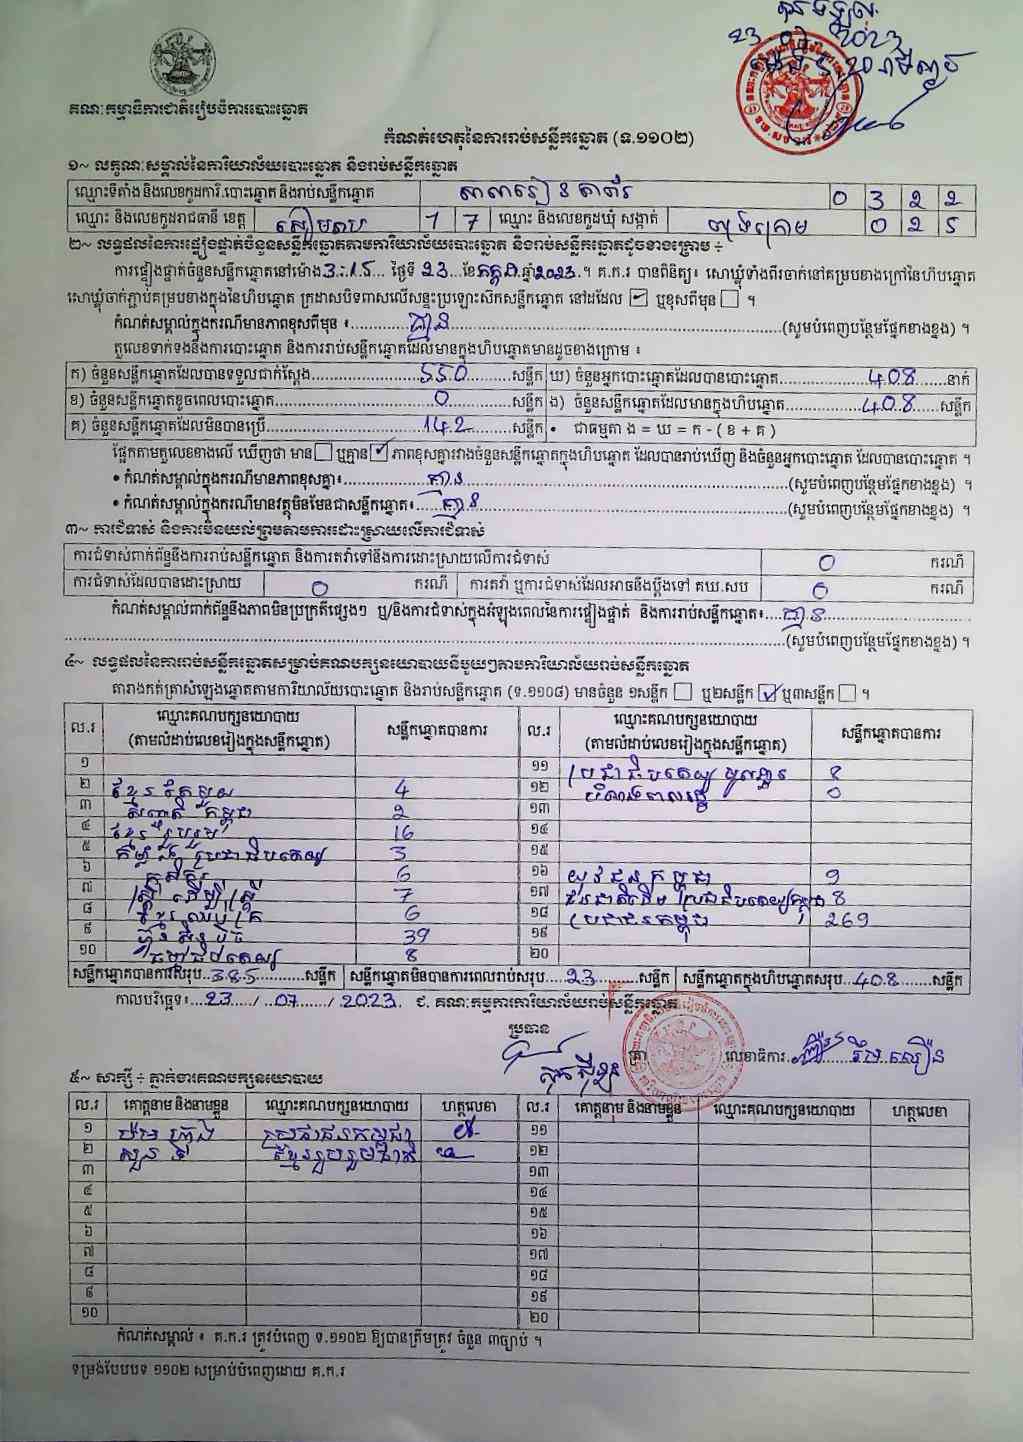 គណៈកម្មាធិការជាតិរៀបចំការបោះឆ្នោត
23 07 2023
កំណត់ហេតុនៃការរាប់សន្លឹកឆ្នោត (ទ.១១០២)
១~ លក្ខណៈសម្គាល់នៃការិយាល័យបោះឆ្នោត និងរាប់សន្លឹកឆ្នោត
ឈ្មោះទីតាំង និងលេខកូដការិ.បោះឆ្នោត និងរាប់សន្លឹកឆ្នោត 0 3 2 2
ឈ្មោះ និងលេខកូដរាជធានី ខេត្ត សៀមរាប 1 7 ឈ្មោះ និងលេខកូដឃុំ សង្កាត់ 0 2 5
២~ លទ្ធផលនៃការផ្ទៀងផ្ទាត់ចំនួនសន្លឹកឆ្នោតតាមការិយាល័យបោះឆ្នោត និងរាប់សន្លឹកឆ្នោតដូចខាងក្រោម ÷
ការផ្ទៀងផ្ទាត់ចំនួនសន្លឹកឆ្នោតនៅម៉ោង 3:15 ថ្ងៃទី 23 ខែ កក្កដា ឆ្នាំ 2023 ។ គ.ក.រ បានពិនិត្យ៖ សោឃ្លុំទាំងពីរចាក់នៅគម្របខាងក្រៅនៃហិបឆ្នោត
សោឃ្លុំចាក់ភ្ជាប់គម្របខាងក្នុងនៃហិបឆ្នោត ក្រដាសបិទពាសលើសន្ទះប្រឡោះស៊កសន្លឹកឆ្នោត នៅដដែល ☑ ឬខុសពីមុន ☐ ។
កំណត់សម្គាល់ក្នុងករណីមានភាពខុសពីមុន ៖ គ្មាន (សូមបំពេញបន្ថែមផ្នែកខាងខ្នង) ។
តួលេខទាក់ទងនឹងការបោះឆ្នោត និងការរាប់សន្លឹកឆ្នោតដែលមានក្នុងហិបឆ្នោតមានដូចខាងក្រោម ៖
ក) ចំនួនសន្លឹកឆ្នោតដែលបានទទួលជាក់ស្ដែង 550 សន្លឹក ឃ) ចំនួនអ្នកបោះឆ្នោតដែលបានបោះឆ្នោត 408 នាក់
ខ) ចំនួនសន្លឹកឆ្នោតខូចពេលបោះឆ្នោត 0 សន្លឹក ង) ចំនួនសន្លឹកឆ្នោតដែលមានក្នុងហិបឆ្នោត 408 សន្លឹក
គ) ចំនួនសន្លឹកឆ្នោតដែលមិនបានប្រើ 142 សន្លឹក • ជាធម្មតា ង = ឃ = ក - ( ខ + គ )
ផ្អែកតាមតួលេខខាងលើ ឃើញថា មាន ☐ ឬគ្មាន ☑ ភាពខុសគ្នារវាងចំនួនសន្លឹកឆ្នោតក្នុងហិបឆ្នោត ដែលបានរាប់ឃើញ និងចំនួនអ្នកបោះឆ្នោត ដែលបានបោះឆ្នោត ។
• កំណត់សម្គាល់ក្នុងករណីមានភាពខុសគ្នា៖ គ្មាន (សូមបំពេញបន្ថែមផ្នែកខាងខ្នង) ។
• កំណត់សម្គាល់ក្នុងករណីមានវត្ថុមិនមែនជាសន្លឹកឆ្នោត៖ គ្មាន (សូមបំពេញបន្ថែមផ្នែកខាងខ្នង) ។
៣~ ការជំទាស់ និងការមិនយល់ព្រមតាមការដោះស្រាយលើការជំទាស់
ការជំទាស់ពាក់ព័ន្ធនឹងការរាប់សន្លឹកឆ្នោត និងការតវ៉ាទៅនឹងការដោះស្រាយលើការជំទាស់ 0 ករណី
ការជំទាស់ដែលបានដោះស្រាយ 0 ករណី ការតវ៉ា ឬការជំទាស់ដែលអាចនឹងប្ដឹងទៅ គឃ.សប 0 ករណី
កំណត់សម្គាល់ពាក់ព័ន្ធនឹងភាពមិនប្រក្រតីផ្សេងៗ ឬ/និងការជំទាស់ក្នុងអំឡុងពេលនៃការផ្ទៀងផ្ទាត់ និងការរាប់សន្លឹកឆ្នោត៖ គ្មាន
(សូមបំពេញបន្ថែមផ្នែកខាងខ្នង) ។
៤~ លទ្ធផលនៃការរាប់សន្លឹកឆ្នោតសម្រាប់គណបក្សនយោបាយនីមួយៗតាមការិយាល័យរាប់សន្លឹកឆ្នោត
តារាងកត់ត្រាសំឡេងឆ្នោតតាមការិយាល័យបោះឆ្នោត និងរាប់សន្លឹកឆ្នោត (ទ.១១០៨) មានចំនួន ១សន្លឹក ☐ ឬ២សន្លឹក ☑ ឬ៣សន្លឹក ☐ ។
ល.រ ឈ្មោះគណបក្សនយោបាយ (តាមលំដាប់លេខរៀងក្នុងសន្លឹកឆ្នោត) សន្លឹកឆ្នោតបានការ ល.រ ឈ្មោះគណបក្សនយោបាយ (តាមលំដាប់លេខរៀងក្នុងសន្លឹកឆ្នោត) សន្លឹកឆ្នោតបានការ
១ ១១ ប្រជាធិបតេយ្យមូលដ្ឋាន 8
២ ខ្មែរតែមួយ 4 ១២ 0
៣ សញ្ជាតិកម្ពុជា 2 ១៣
៤ ខ្មែររួបរួម 16 ១៤
៥ កម្លាំងប្រជាធិបតេយ្យ 3 ១៥
៦ កសិករ 6 ១៦ យុវជនកម្ពុជា 9
៧ ស្ត្រីដើម្បីស្ត្រី 7 ១៧ ជនជាតិដើមប្រជាធិបតេយ្យកម្ពុជា 8
៨ ខ្មែរឈប់ក្រ 6 ១៨ ប្រជាជនកម្ពុជា 269
៩ ហ៊្វុនស៊ិនប៉ិច 39 ១៩
១០ ធម្មាធិបតេយ្យ 8 ២០
សន្លឹកឆ្នោតបានការសរុប 385 សន្លឹក សន្លឹកឆ្នោតមិនបានការពេលរាប់សរុប 23 សន្លឹក សន្លឹកឆ្នោតក្នុងហិបឆ្នោតសរុប 408 សន្លឹក
កាលបរិច្ឆេទ៖ 23 / 07 / 2023. ៩. គណៈកម្មការការិយាល័យរាប់សន្លឹកឆ្នោត
ប្រធាន
ត្រា លេខាធិការ
៥~ សាក្សី ÷ ភ្នាក់ងារគណបក្សនយោបាយ
ល.រ គោត្តនាម និងនាមខ្លួន ឈ្មោះគណបក្សនយោបាយ ហត្ថលេខា ល.រ គោត្តនាម និងនាមខ្លួន ឈ្មោះគណបក្សនយោបាយ ហត្ថលេខា
១ ប្រជាជនកម្ពុជា ១១
២ ខ្មែររួបរួមជាតិ ១២
៣ ១៣
៤ ១៤
៥ ១៥
៦ ១៦
៧ ១៧
៨ ១៨
៩ ១៩
១០ ២០
កំណត់សម្គាល់ ៖ គ.ក.រ ត្រូវបំពេញ ទ.១១០២ ឱ្យបានត្រឹមត្រូវ ចំនួន ៣ច្បាប់ ។
ទម្រង់បែបបទ ១១០២ សម្រាប់បំពេញដោយ គ.ក.រ